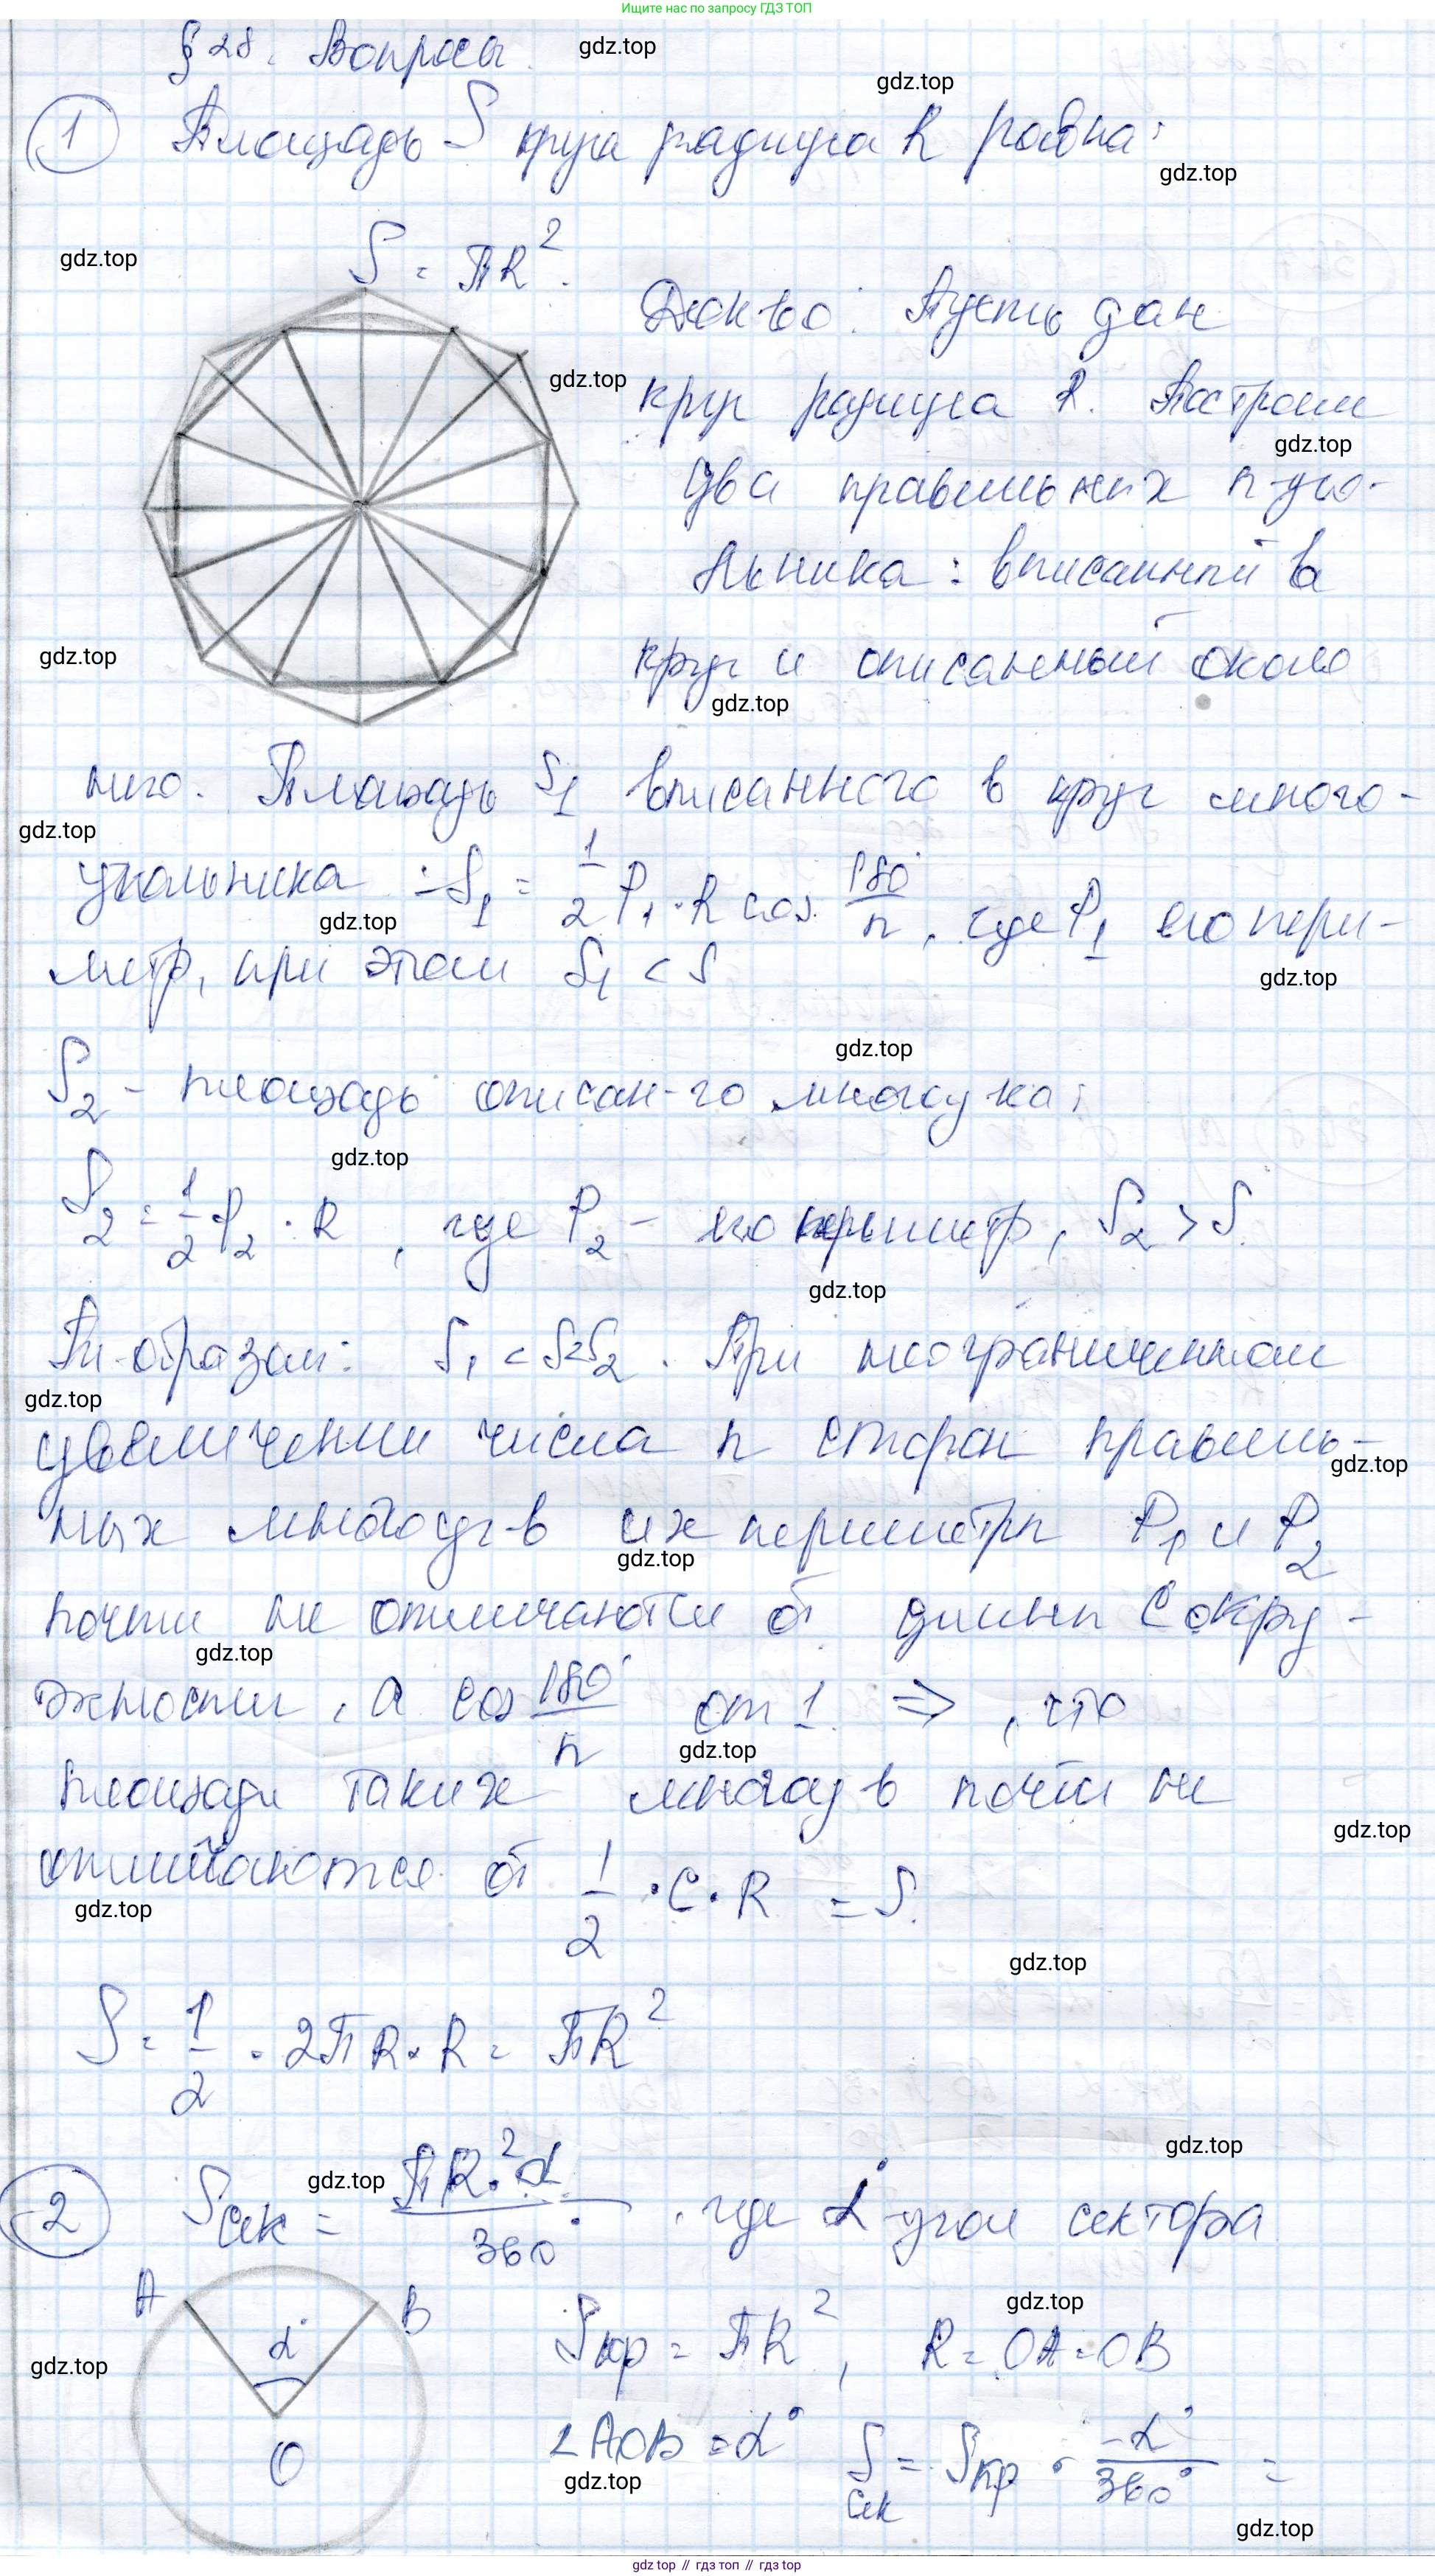 Ищите нас по запросу ГДЗ ТОП
§ 28. Вопросы.
gdz.top
gdz.top
1 Площадь S круга радиуса R равна:
gdz.top
S = πR².
gdz.top
Док-во: Пусть дан
gdz.top
круг радиуса R. Построим
gdz.top
два правильных n-уго-
льника: вписанный в
gdz.top
круг и описанный около
gdz.top
него. Площадь S₁ вписанного в круг много-
gdz.top
угольника: S₁ = 1/2 P₁ · R cos 180°/n, где P₁ его пери-
gdz.top
метр, при этом S₁ < S
gdz.top
gdz.top
S₂ - площадь описан-го многоу-ка:
gdz.top
S₂ = 1/2 P₂ · R, где P₂ - его периметр, S₂ > S.
gdz.top
Т. образом: S₁ < S < S₂. При неограниченном
gdz.top
увеличении числа n сторон правиль-
gdz.top
ных многоуг-в их периметры P₁ и P₂
gdz.top
почти не отличаются от длины C окру-
gdz.top
жности, а cos 180°/n от 1. ⇒, что
gdz.top
площади таких многоуг-в почти не
gdz.top
отличаются от 1/2 · C · R = S.
gdz.top
gdz.top
S = 1/2 · 2πR · R = πR²
gdz.top
2 Sсек = πR² · α/360°, где α° - угол сектора
gdz.top
A B
α°
O
Sкр = πR², R = OA = OB
gdz.top
gdz.top
∠AOB = α° Sсек = Sкр · α°/360° =
gdz.top
gdz.top
gdz top // гдз топ // gdz top